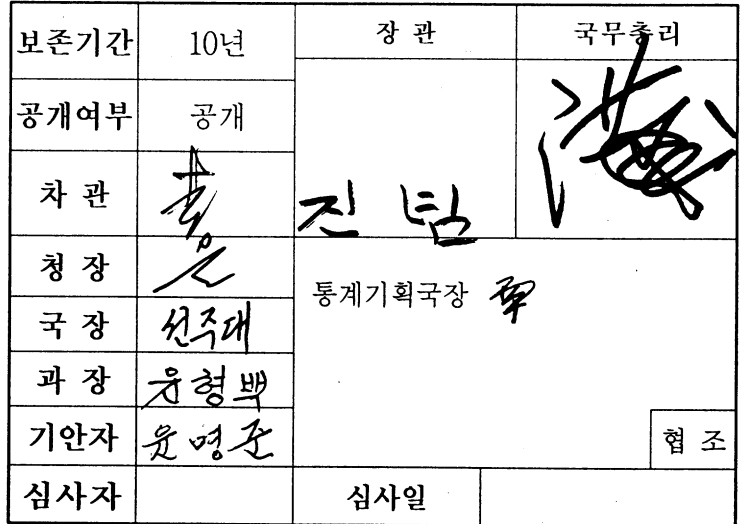 보존기간 10년 장관 국무총리
공개여부 공개
차관
진 념
청장
통계기획국장
국장 선주대
과장 윤형백
기안자 윤명준 협조
심사자 심사일